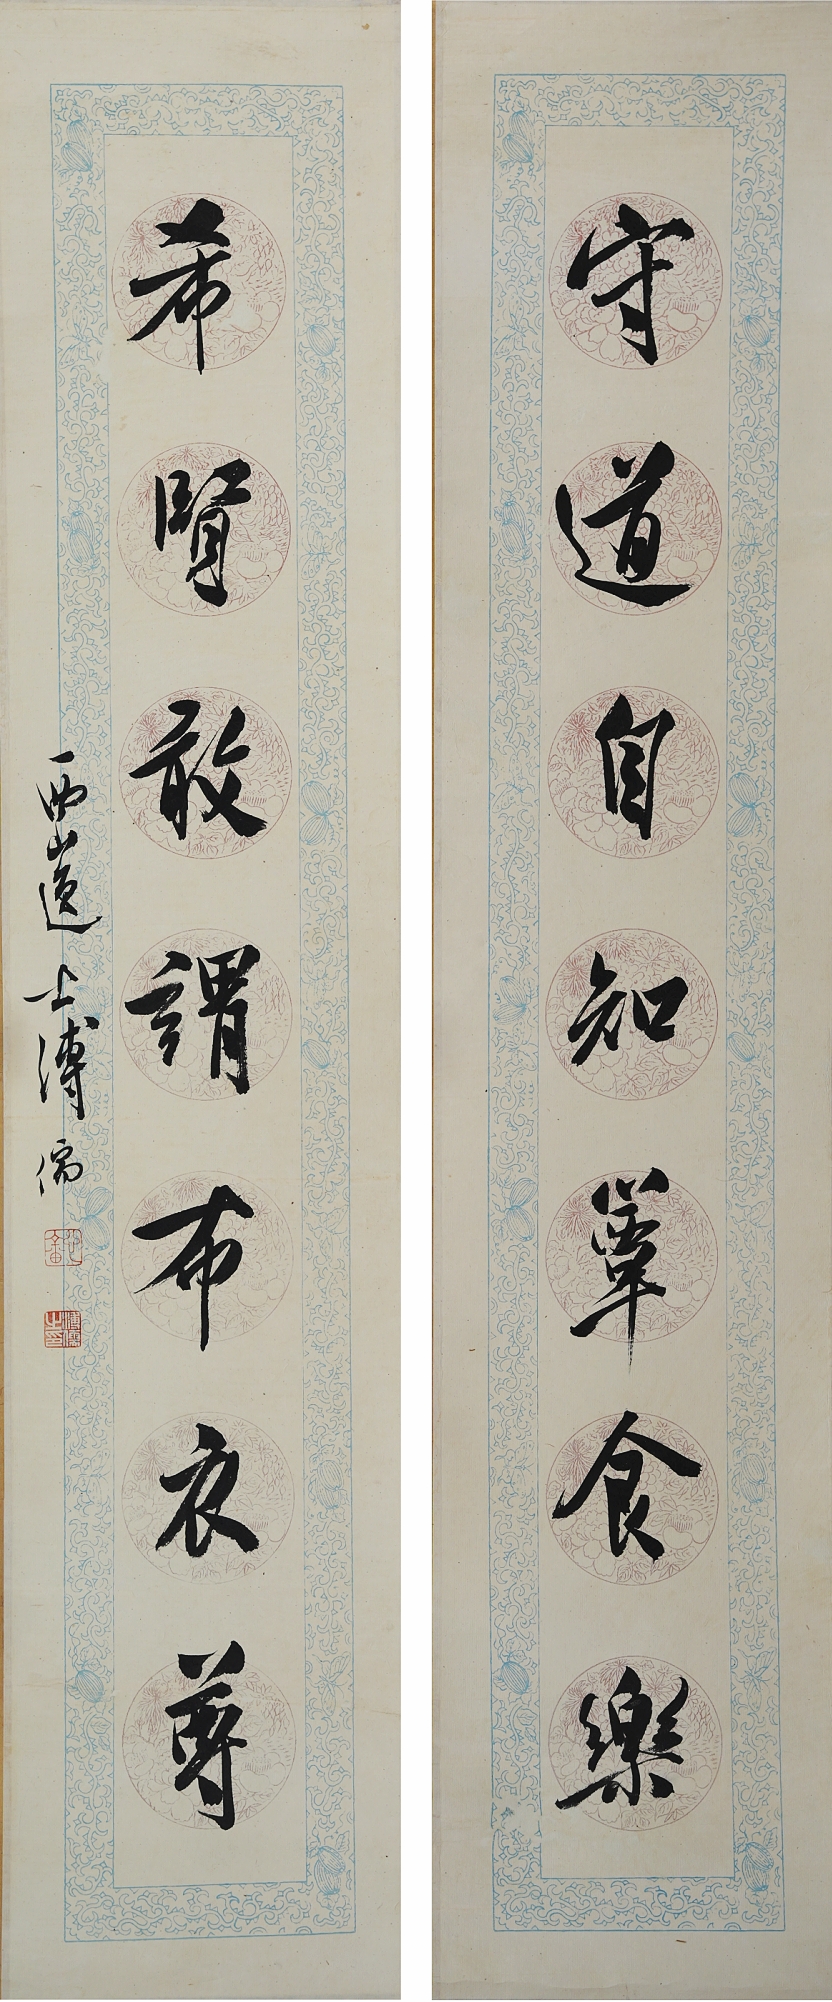 守道自知簞食樂
希賢敢謂布衣尊
西山逸士溥儒
溥儒之印